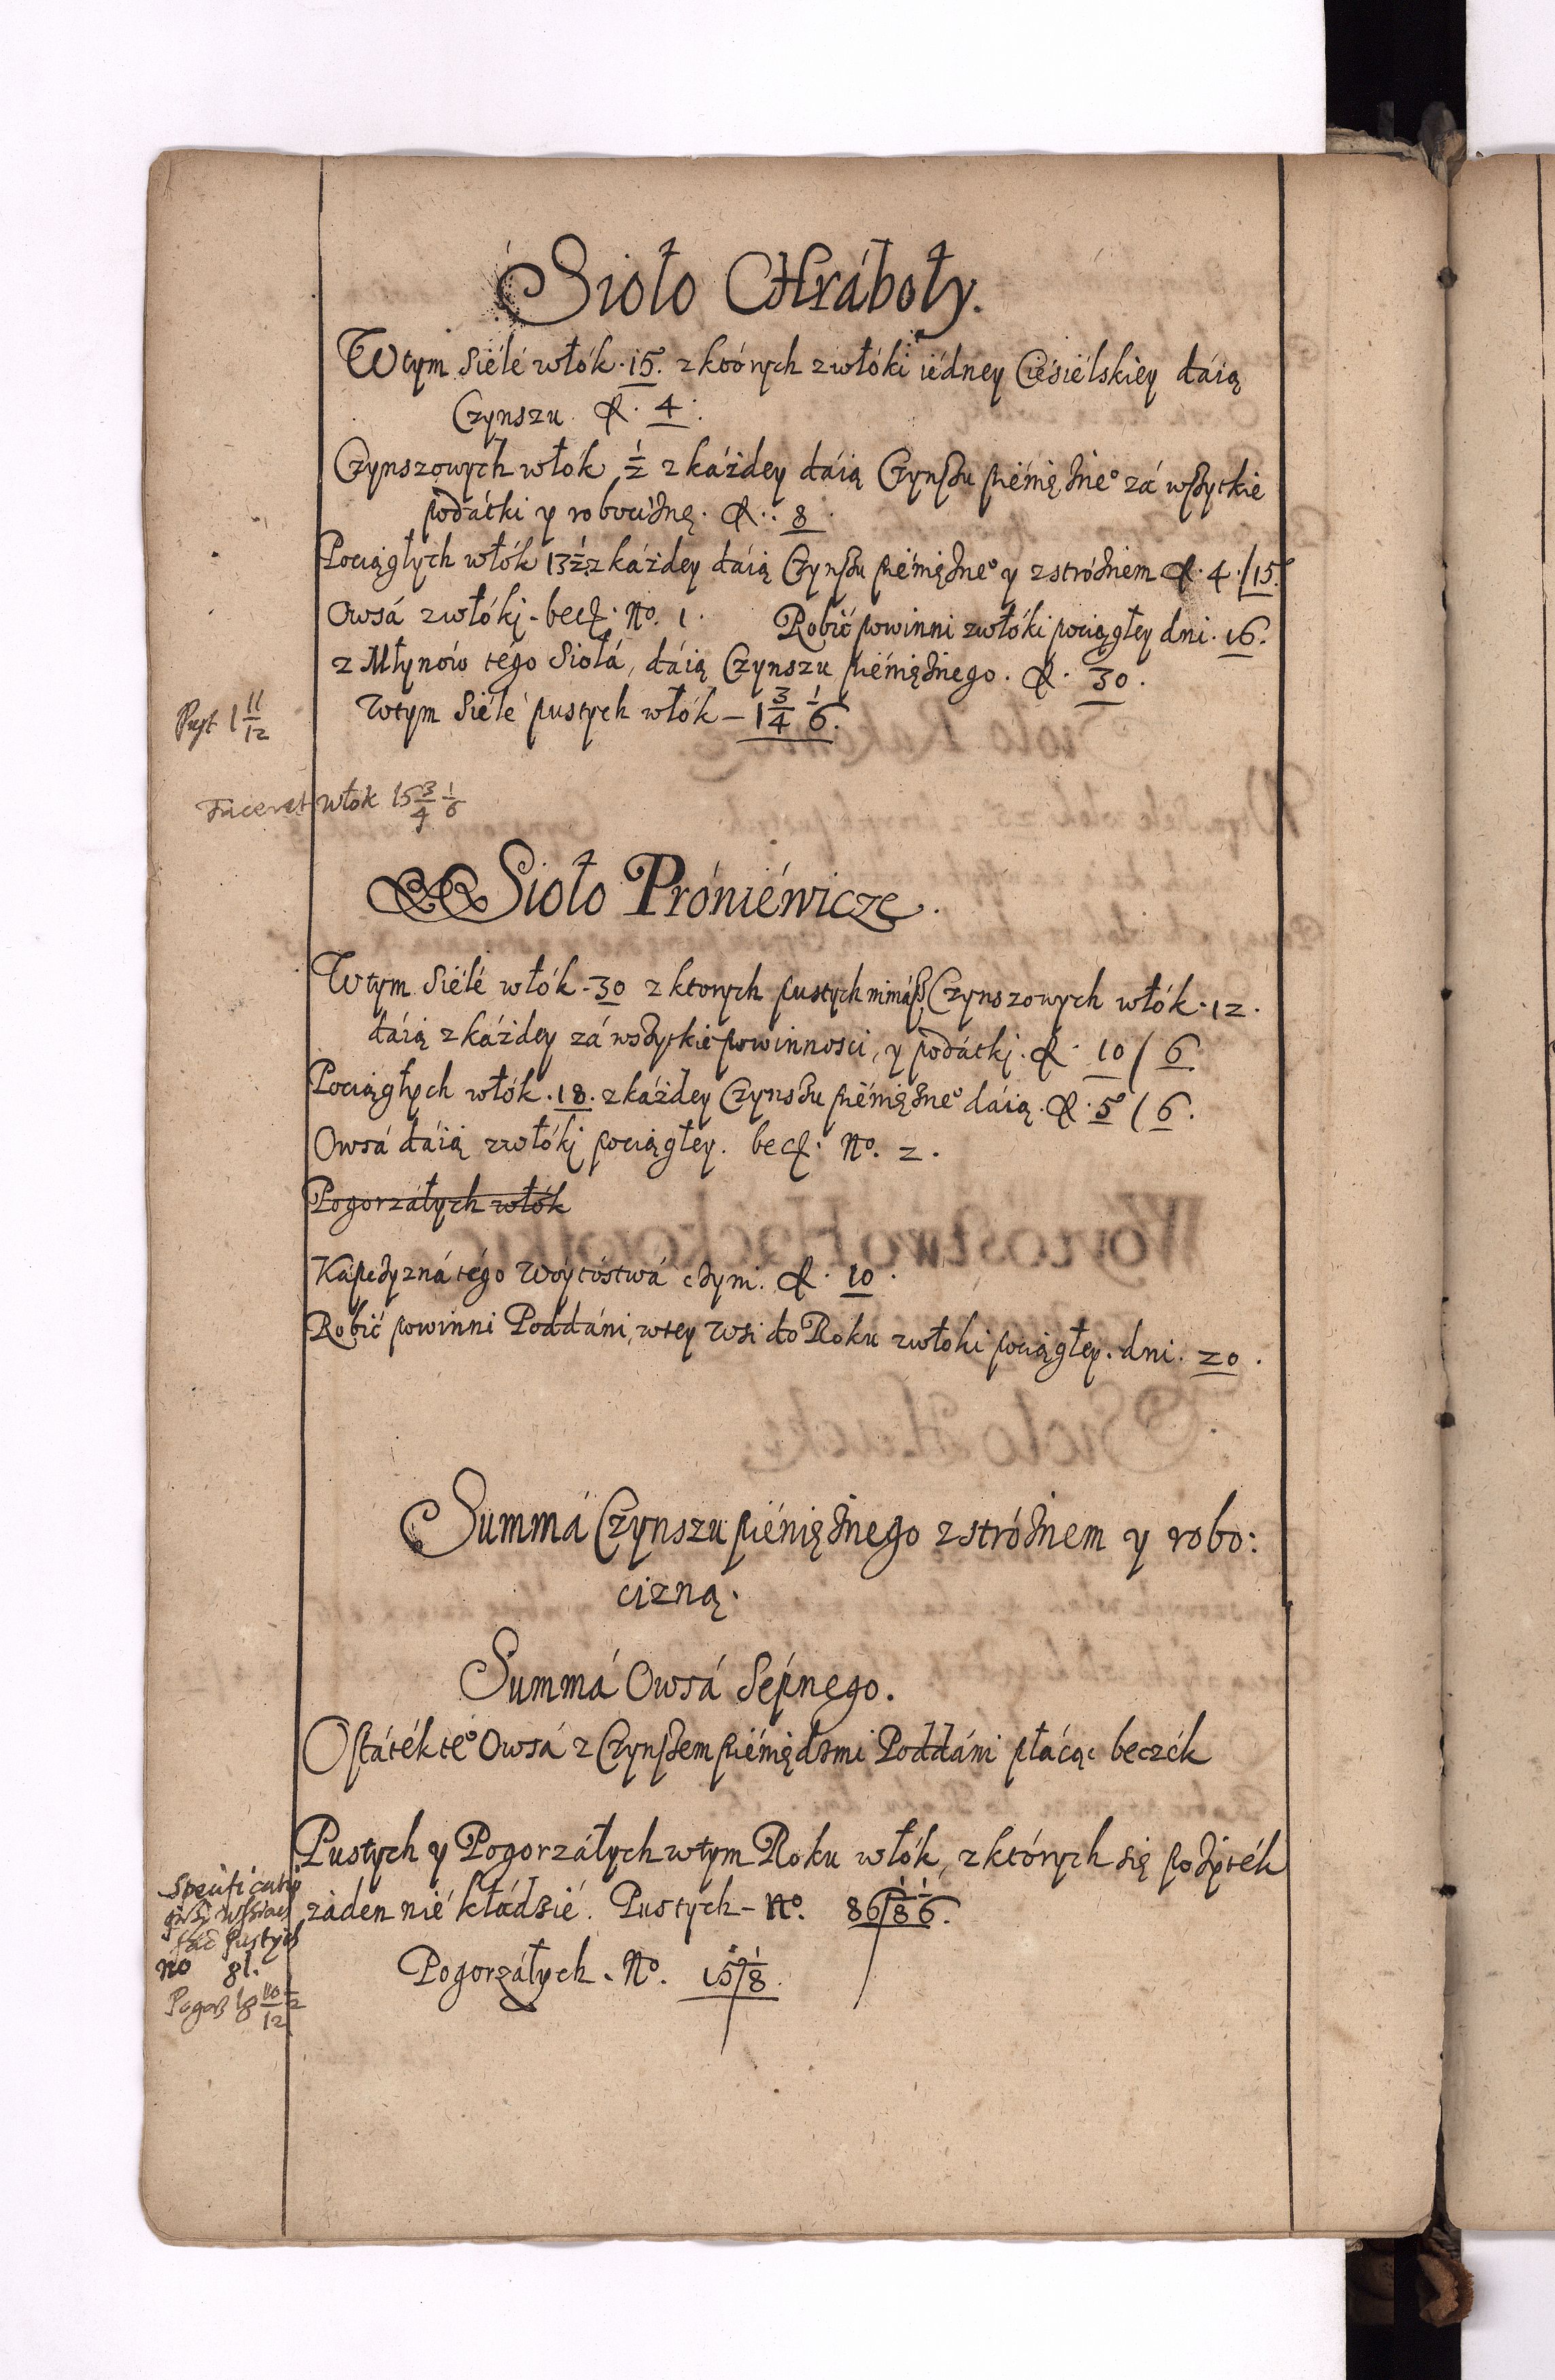 Sioło Chráboły.
W tym Siéle włók . 15. z których z włóki iédney Ciésiélskiéy dáią
Czynszu fl. 4.
Czynszowych włók ½ z káżdey dáią Czynszu piéniężneº zá wszytkie
podátki y robociznę. fl. 8.
Pociągłych włók 13½ z káżdey dáią Czynszu piéniężneº y z stróżniem fl. 4./15.
Owsá z włóki. becz. Nº. 1. Robić powinni z włóki pociągłey dni. 16.
z Młynów tégo Siołá, dáią Czynszu piéniężnego. fl. 30.
W tym Siéle pustych włók – 1 3/4 1/6.
Pust 1 11/12
Faceret włok 15 3/4 1/6
Sioło Próniéwicze.
W tym Siéle włók . 30 z ktorych pustych nimász, Czynszowych włók . 12.
dáią z káżdey zá wszytkie powinnosci, y podátki. fl. 10 / 6
Pociągłych włók . 18. z káżdey Czynszu piéniężneº dáią. fl. 5 / 6.
Owsá dáią z włóki pociągłey. becz. Nº. 2.
Pogorzáłych włók
Kápczyzná tégo Woytóstwá czyni. fl. 10.
Robić powinni Poddáni, w tey Wsi do Roku z włoki pociągłey. dni. 20.
Summá Czynszu piéniężnego z stróżnem y robo:
cizną.
Summá Owsá Sépnego.
Ostáték teº Owsá z Czynszem piéniędzmi Poddáni płácąc beczék
Pustych y Pogorzáłych w tym Roku włók, z których się pożyték
żáden nié kłádzié. Pustych – Nº. 86/ 1/8 1/6.
Pogorzáłych. Nº. 15/ 1/8.
Pustych
no 81.
Pogorz 18 10/12 ½